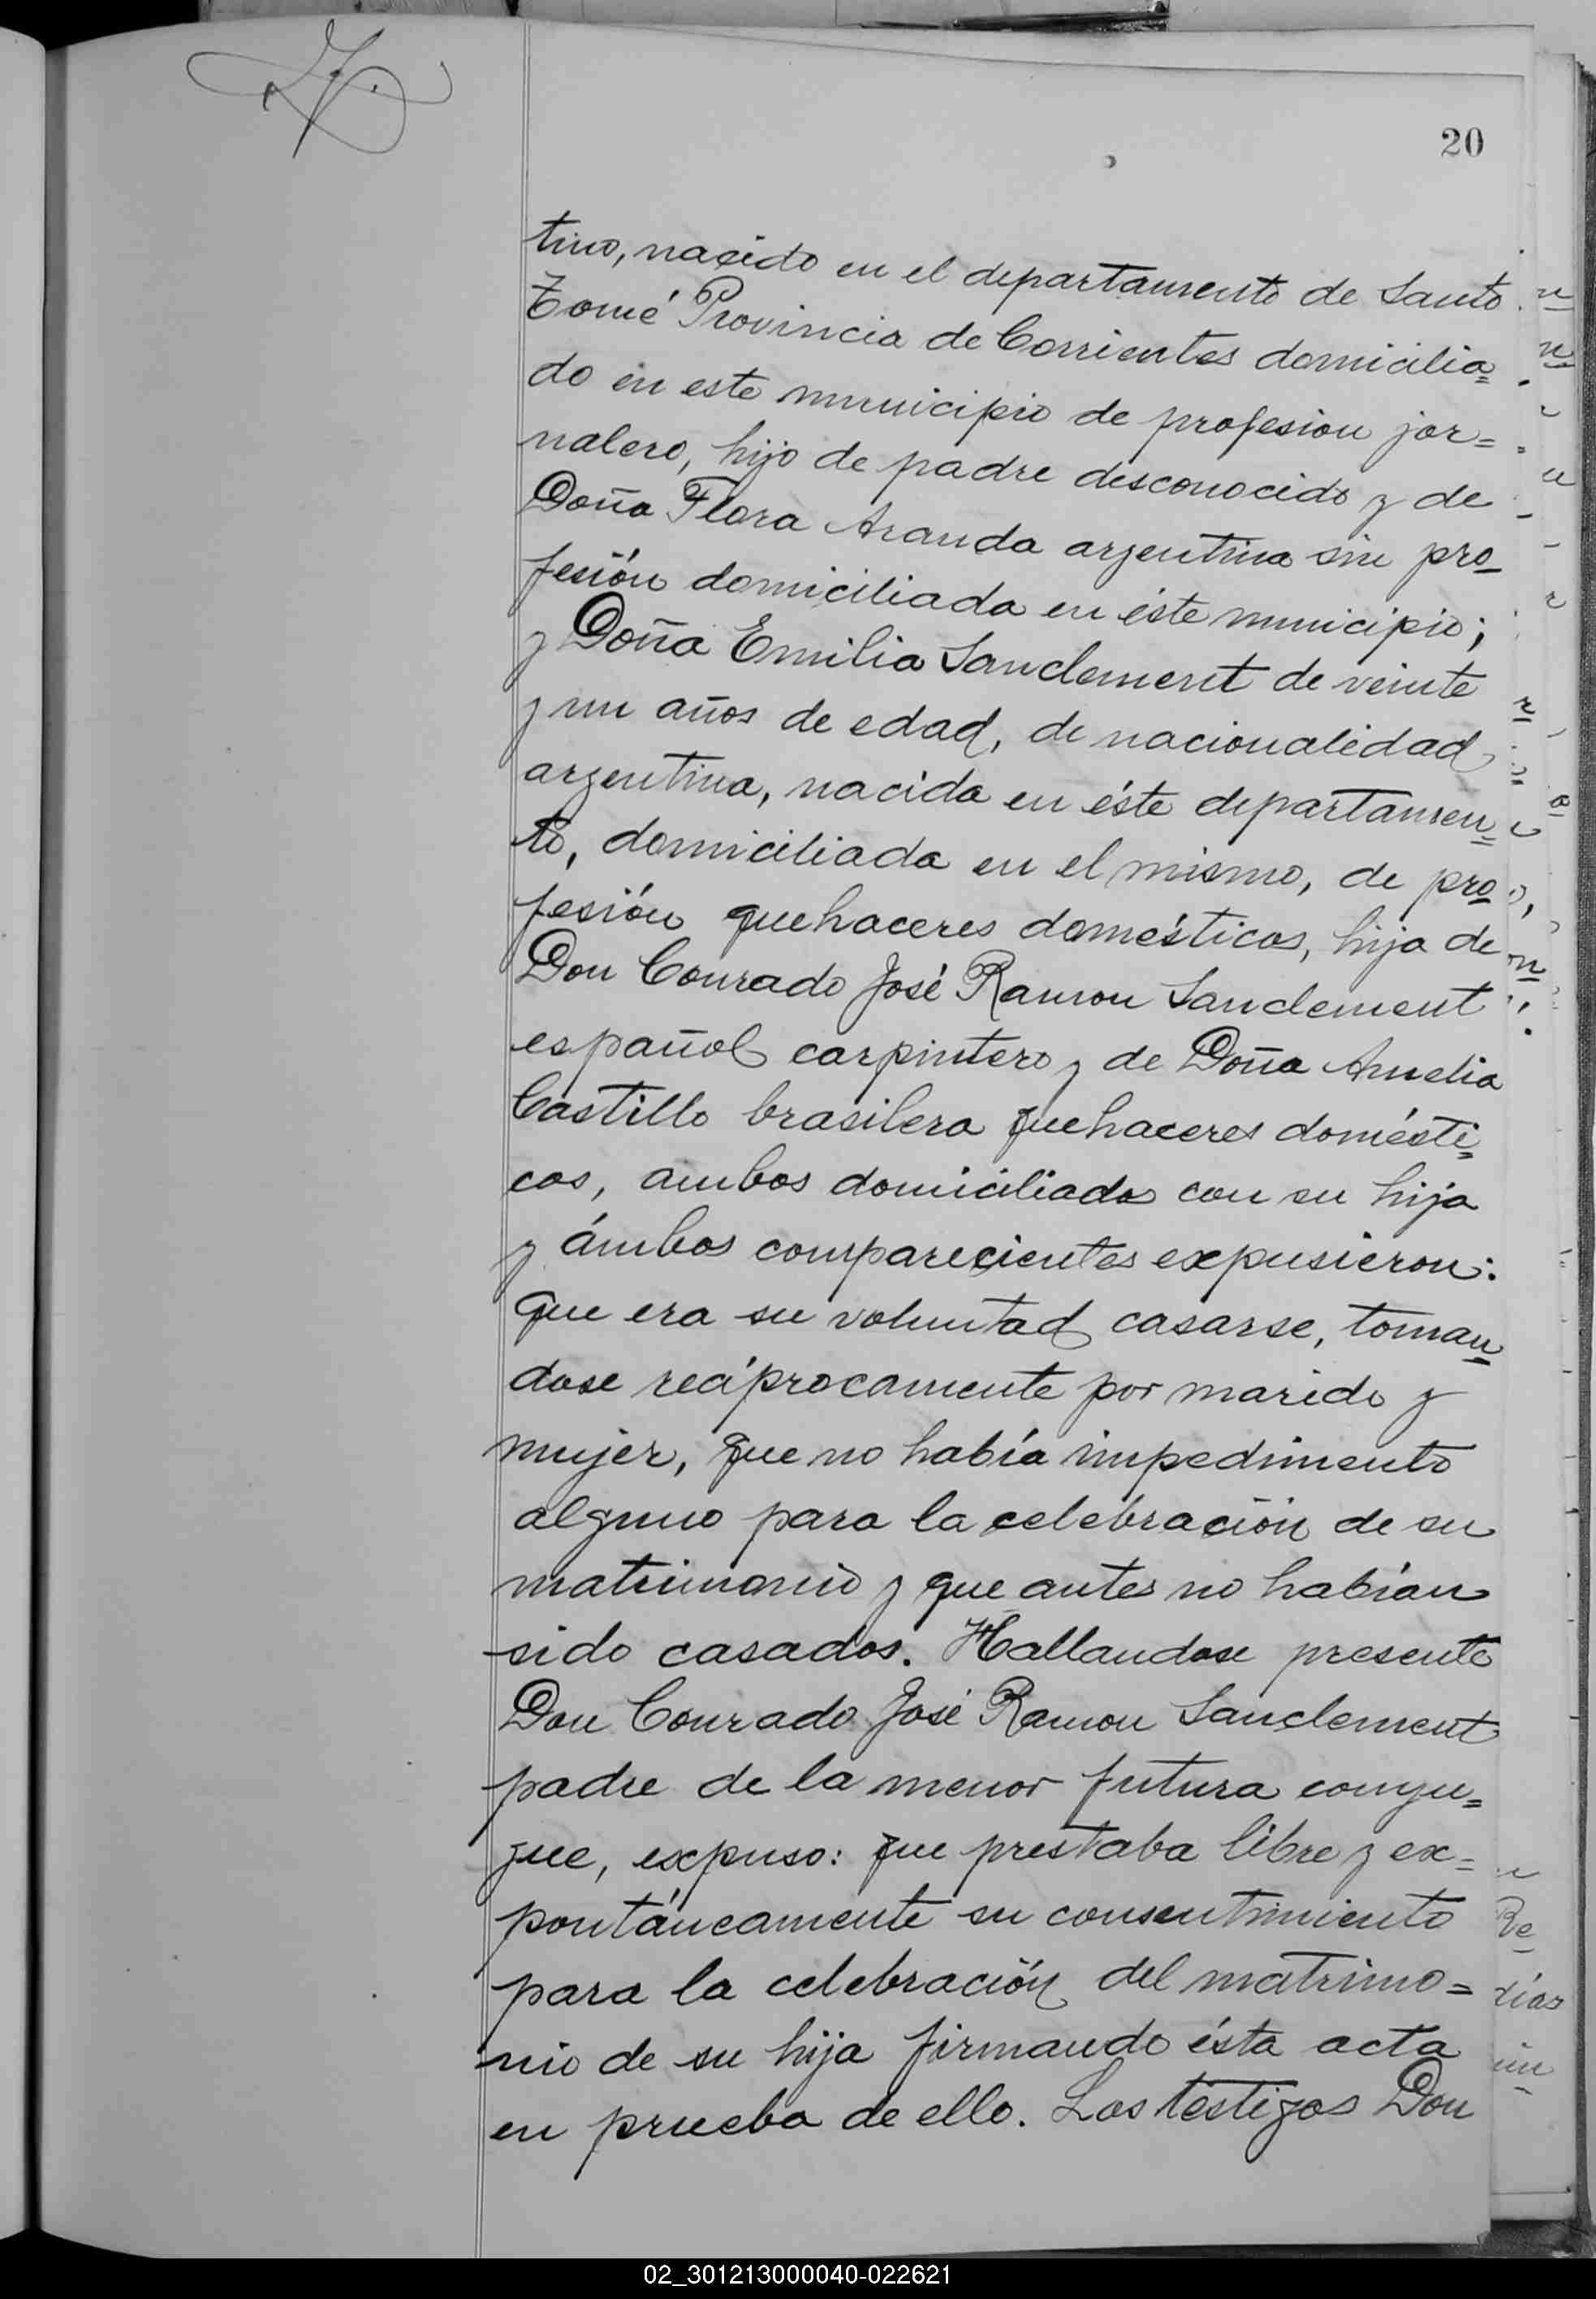 20
tino, nacido en el departamento de Santo
Tomé Provincia de Corrientes domicilia=
do en este municipio de profesion jor=
nalero, hijo de padre desconocido y de
Doña Flora Aranda argentina sin pro_
fesión domiciliada en éste municipio;
y Doña Emilia Sanclement de veinte
y un años de edad, de nacionalidad
argentina, nacida en éste departamen=
to, domiciliada en el mismo, de pro_
fesión quehaceres domésticos, hija de
Don Conrado José Ramon Sanclement
español carpintero y de Doña Amelia
Castillo brasilera quehaceres domésti=
cos, ambos domiciliados con su hija
y ámbos comparecientes expusieron:
que era su voluntad casarse, toman_
dose recíprocamente por marido y
mujer, que no había impedimento
alguno para la celebración de su
matrimonio y que antes no habían
sido casados. Hallandose presente
Don Conrado José Ramon Sanclement
padre de la menor futura conyu=
gue, expuso: que prestaba libre y ex=
pontáneamente su consentimiento
para la celebración del matrimo=
nio de su hija firmando ésta acta
en prueba de ello. Los testigos Don
02_301213000040-022621